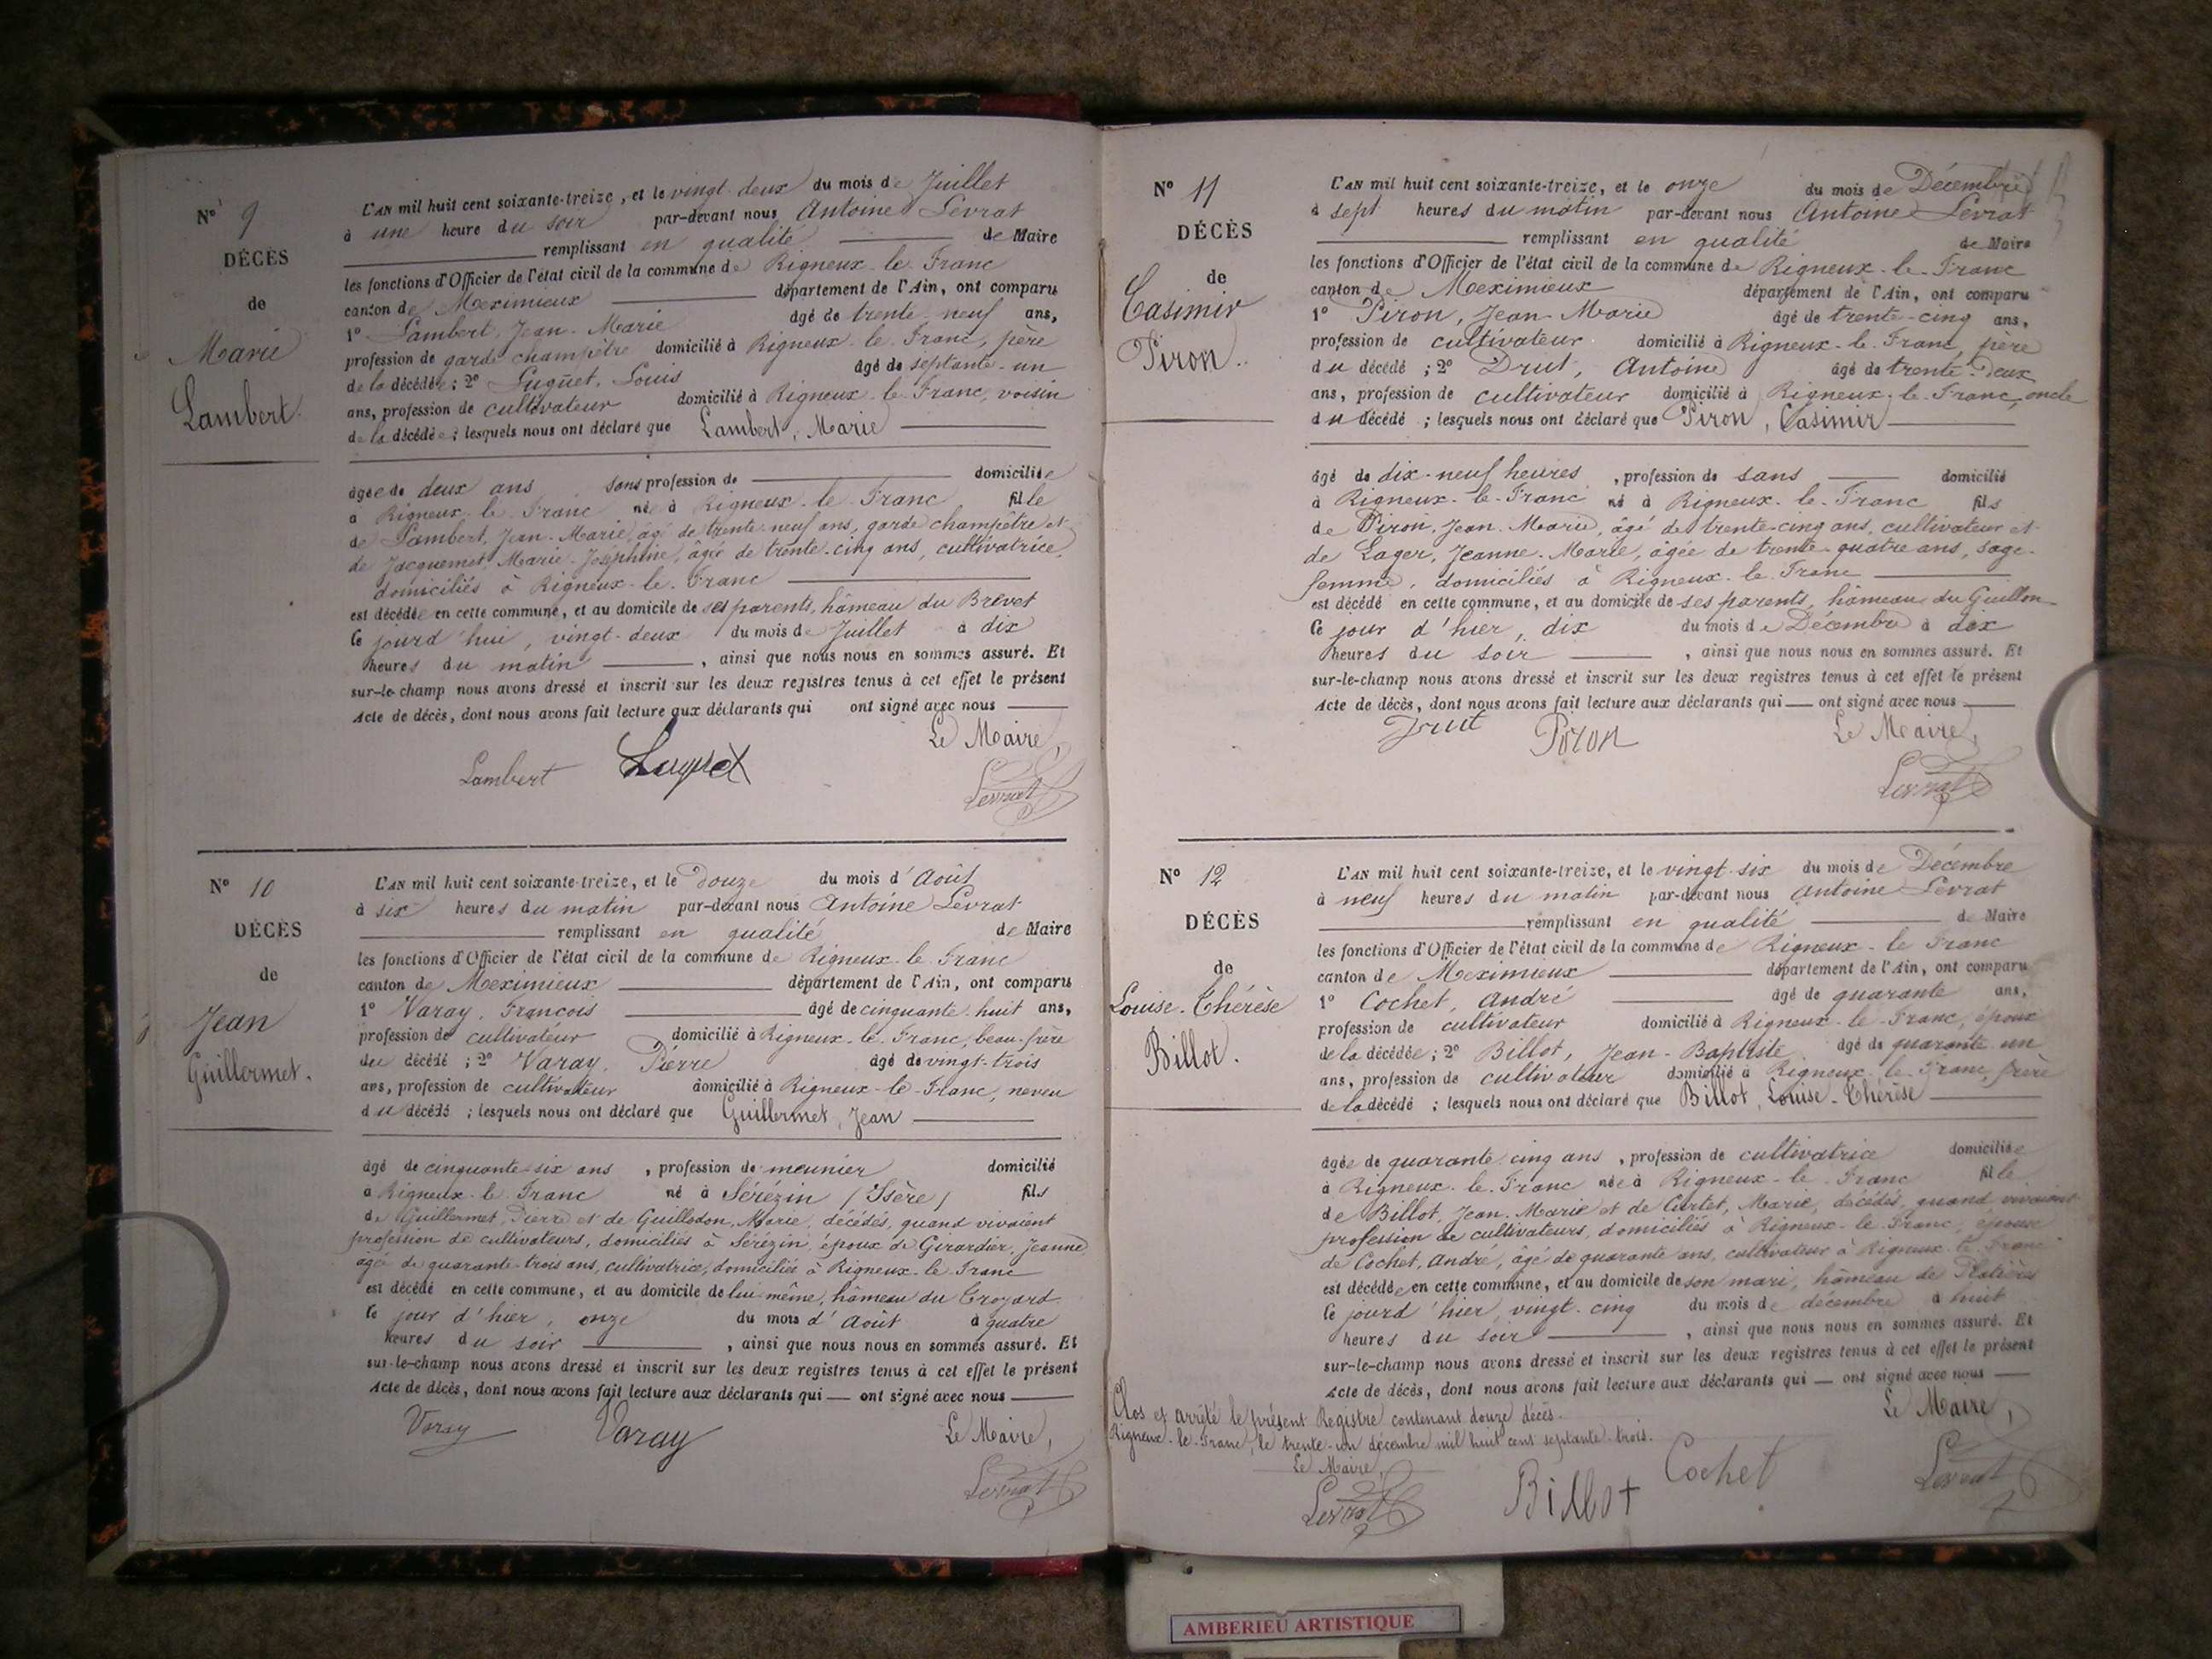 N° 9
DÉCÈS
de
Marie
Lambert.
L'AN mil huit cent soixante-treize, et le vingt-deux du mois de Juillet
à une heure du soir par-devant nous Antoine Levrat
remplissant en qualité de Maire
les fonctions d'Officier de l'état civil de la commune de Rigneux-le-Franc
canton de Meximieux département de l'Ain, ont comparu
1° Lambert, Jean-Marie âgé de trente-neuf ans,
profession de garde champêtre domicilié à Rigneux-le-Franc, père
de la décédée ; 2° Luguet, Louis âgé de septante-un
ans, profession de cultivateur domicilié à Rigneux-le-Franc, voisin
de la décédée ; lesquels nous ont déclaré que Lambert, Marie
âgée de deux ans sans profession de domiciliée
à Rigneux-le-Franc née à Rigneux-le-Franc fille
de Lambert, Jean-Marie, âgé de trente-neuf ans, garde champêtre et
de Jacquemet, Marie-Joséphine, âgée de trente-cinq ans, cultivatrice,
domiciliés à Rigneux-le-Franc
est décédée en cette commune, et au domicile de ses parents, hâmeau du Brevet
ce jourd'hui, vingt-deux du mois de Juillet à dix
heures du matin, ainsi que nous nous en sommes assuré. Et
sur-le-champ nous avons dressé et inscrit sur les deux registres tenus à cet effet le présent
Acte de décès, dont nous avons fait lecture aux déclarants qui ont signé avec nous
Le Maire,
Lambert Luguet Levrat
N° 10
DÉCÈS
de
Jean
Guillermet.
L'AN mil huit cent soixante-treize, et le douze du mois d'Août
à six heures du matin par-devant nous Antoine Levrat
remplissant en qualité de Maire
les fonctions d'Officier de l'état civil de la commune de Rigneux-le-Franc
canton de Meximieux département de l'Ain, ont comparu
1° Varay, François âgé de cinquante-huit ans,
profession de cultivateur domicilié à Rigneux-le-Franc, beau-frère
du décédé ; 2° Varay, Pierre âgé de vingt-trois
ans, profession de cultivateur domicilié à Rigneux-le-Franc, neveu
du décédé ; lesquels nous ont déclaré que Guillermet, Jean
âgé de cinquante-six ans, profession de meunier domicilié
à Rigneux-le-Franc né à Sérézin (Isère) fils
de Guillermet, Pierre et de Guillodon, Marie, décédés, quand vivaient
profession de cultivateurs, domiciliés à Sérézin, époux de Girardier, Jeanne
âgée de quarante-trois ans, cultivatrice, domiciliée à Rigneux-le-Franc
est décédé en cette commune, et au domicile de lui-même, hâmeau du Croyard
le jour d'hier, onze du mois d'Août à quatre
heures du soir, ainsi que nous nous en sommes assuré. Et
sur-le-champ nous avons dressé et inscrit sur les deux registres tenus à cet effet le présent
Acte de décès, dont nous avons fait lecture aux déclarants qui ont signé avec nous
Varay Varay Le Maire,
Levrat
N° 11
DÉCÈS
de
Casimir
Piron.
L'AN mil huit cent soixante-treize, et le onze du mois de Décembre
à sept heures du matin par-devant nous Antoine Levrat
remplissant en qualité de Maire
les fonctions d'Officier de l'état civil de la commune de Rigneux-le-Franc
canton de Meximieux département de l'Ain, ont comparu
1° Piron, Jean-Marie âgé de trente-cinq ans,
profession de cultivateur domicilié à Rigneux-le-Franc, père
du décédé ; 2° Drut, Antoine âgé de trente-deux
ans, profession de cultivateur domicilié à Rigneux-le-Franc, oncle
du décédé ; lesquels nous ont déclaré que Piron, Casimir
âgé de dix-neuf heures, profession de sans domicilié
à Rigneux-le-Franc né à Rigneux-le-Franc fils
de Piron, Jean-Marie, âgé de trente-cinq ans, cultivateur et
de Lager, Jeanne-Marie, âgée de trente-quatre ans, sage-
femme, domiciliés à Rigneux-le-Franc
est décédé en cette commune, et au domicile de ses parents, hâmeau du Guillon
le jour d'hier, dix du mois de Décembre à dix
heures du soir, ainsi que nous nous en sommes assuré. Et
sur-le-champ nous avons dressé et inscrit sur les deux registres tenus à cet effet le présent
Acte de décès, dont nous avons fait lecture aux déclarants qui ont signé avec nous
Drut Piron Le Maire,
Levrat
N° 12
DÉCÈS
de
Louise-Thérèse
Billot.
L'AN mil huit cent soixante-treize, et le vingt-six du mois de Décembre
à neuf heures du matin par-devant nous Antoine Levrat
remplissant en qualité de Maire
les fonctions d'Officier de l'état civil de la commune de Rigneux-le-Franc
canton de Meximieux département de l'Ain, ont comparu
1° Cochet, André âgé de quarante ans,
profession de cultivateur domicilié à Rigneux-le-Franc, époux
de la décédée ; 2° Billot, Jean-Baptiste âgé de quarante-un
ans, profession de cultivateur domicilié à Rigneux-le-Franc, frère
de la décédé ; lesquels nous ont déclaré que Billot, Louise-Thérèse
âgée de quarante-cinq ans, profession de cultivatrice domiciliée
à Rigneux-le-Franc née à Rigneux-le-Franc fille
de Billot, Jean-Marie et de Curtet, Marie, décédés, quand vivaient
profession de cultivateurs, domiciliés à Rigneux-le-Franc, épouse
de Cochet, André, âgé de quarante ans, cultivateur à Rigneux-le-Franc
est décédée en cette commune, et au domicile de son mari, hâmeau de Platières
le jourd'hier, vingt-cinq du mois de décembre à huit
heures du soir, ainsi que nous nous en sommes assuré. Et
sur-le-champ nous avons dressé et inscrit sur les deux registres tenus à cet effet le présent
Acte de décès, dont nous avons fait lecture aux déclarants qui ont signé avec nous
Le Maire,
Clos et arrêté le présent Registre contenant douze décès.
Rigneux-le-Franc, le trente-un décembre mil huit cent septante-trois.
Le Maire,
Levrat Billot Cochet Levrat
AMBERIEU ARTISTIQUE